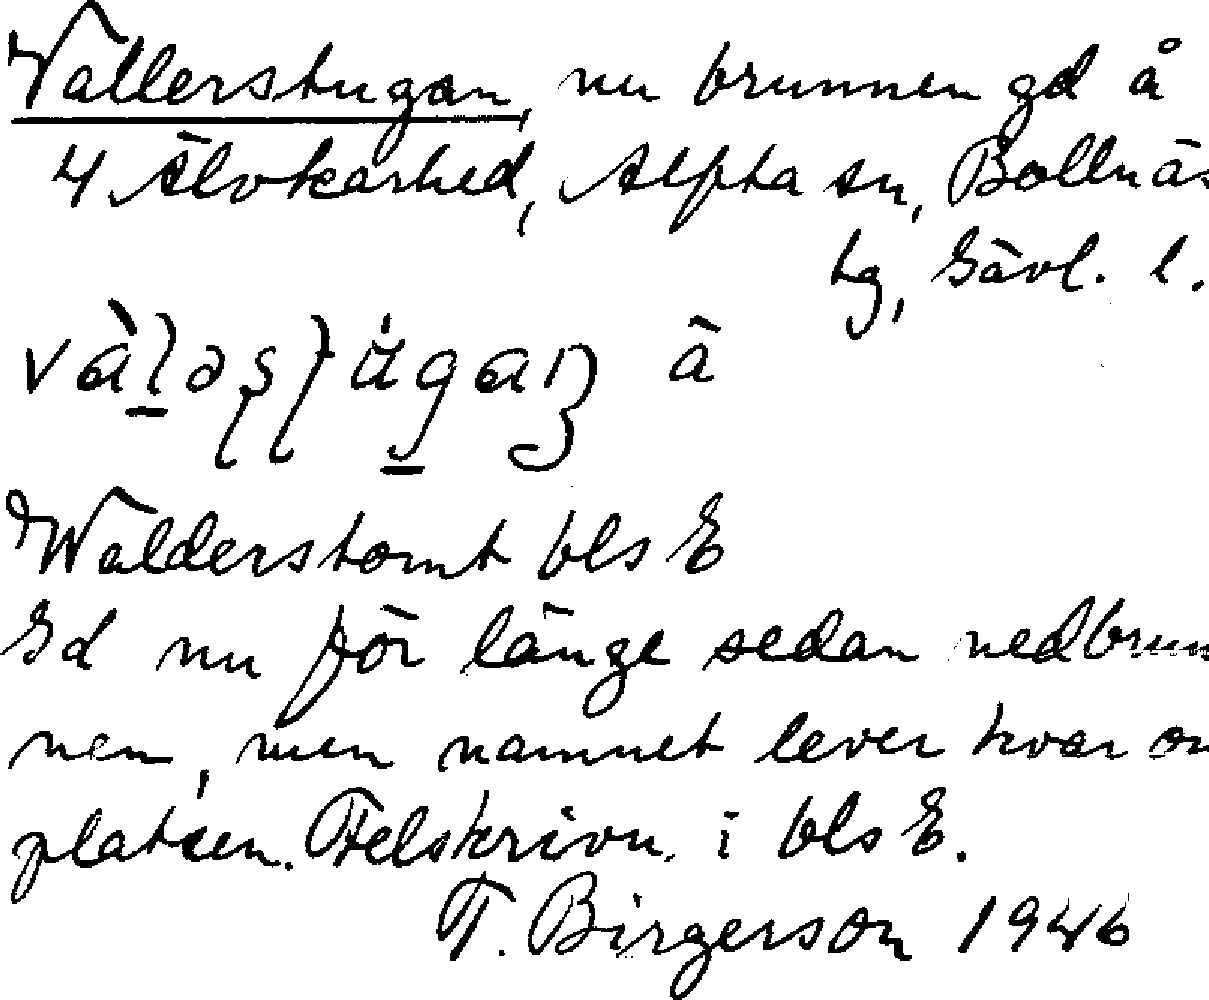 Vallerstugan, nu brunnen gd å
4 Älvkarhed, Alfta sn, Bollnäs
tg, Gävl. l.
vàləsstúgan å
Walderstomt bls E
Gd nu för länge sedan nedbrun
nen, men namnet lever kvar om
platsen. Felskrivn. i bls E.
T. Birgerson 1946